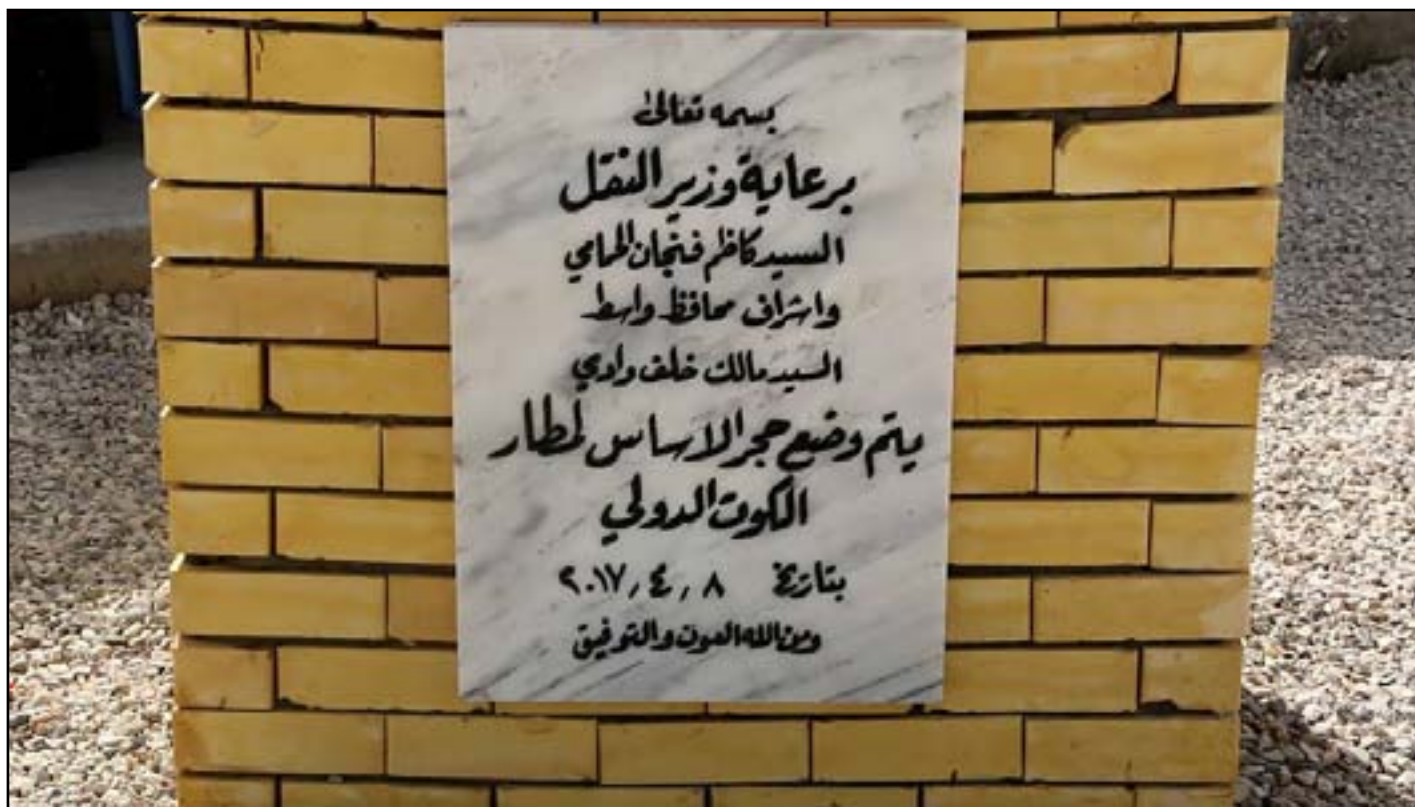 بسمه تعالى
برعاية وزير النقل
السيد كاظم فنجان الحمامي
واشراف محافظ واسط
السيد مالك خلف وادي
يتم وضع حجر الاساس لمطار
الكوت الدولي
بتاريخ ٢٠١٧,٤,٨
ومن الله العون والتوفيق